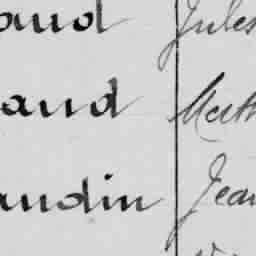 aud Jules
aud Math
audin Jean